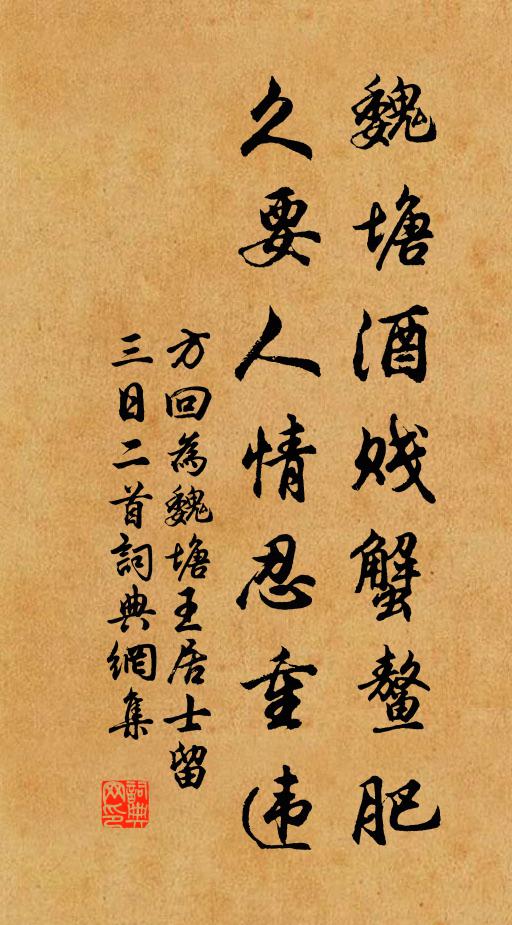 魏塘酒贱蟹鳌肥
久要人情忍重违
方回為魏塘王居士留
三日二首詞典網集
詞典
网印